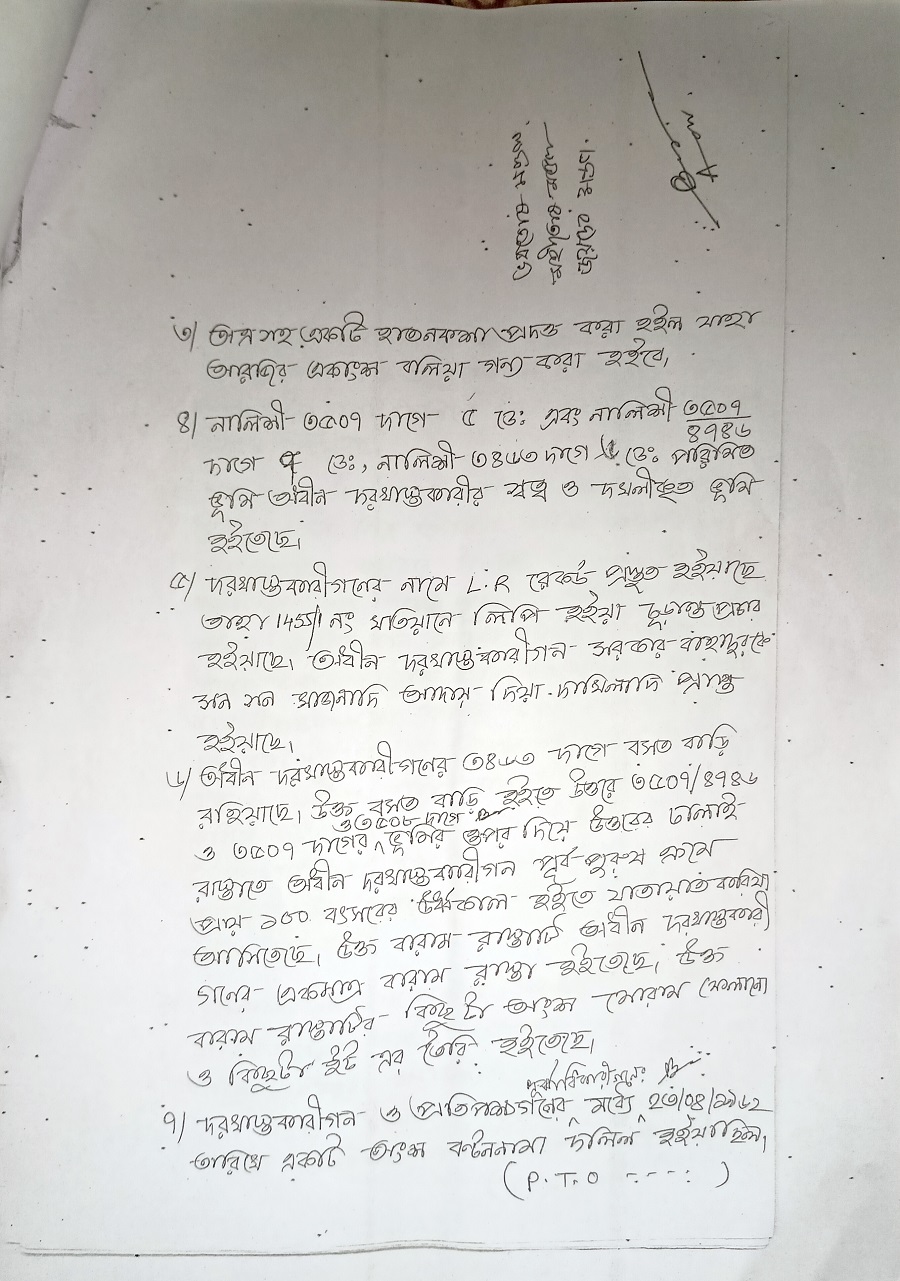 ৩/ অত্র সহ একটি হাতনকশা প্রদত্ত করা হইল যাহা
আরজির একাংশ বলিয়া গন্য করা হইবে।
৪/ নালিশী ৩৫০৭ দাগে ৫ ডেঃ এবং নালিশী ৩৫০৭/৪৭৪৬
দাগে ডেঃ, নালিশী ৩৪৬৩ দাগে ডেঃ পরিমিত
ভূমি অধীন দরখাস্তকারীর স্বত্ব ও দখলীকৃত ভূমি
হইতেছে।
৫/ দরখাস্তকারীগনের নামে L.R রেকর্ড প্রস্তুত হইয়াছে
তাহা 1455/1 নং খতিয়ানে লিপি হইয়া চূড়ান্ত প্রচার
হইয়াছে। অধীন দরখাস্তকারীগন সরকার বাহাদুরকে
সন সন খাজনাদি আদায় দিয়া দাখিলাদি প্রাপ্ত
হইয়াছে।
৬/ অধীন দরখাস্তকারীগনের ৩৪৬৩ দাগে বসত বাড়ি
রহিয়াছে। উক্ত বসত বাড়ি হইতে উত্তরে ৩৫০৭/৪৭৪৬
ও ৩৫০৮ দাগে
ও ৩৫০৭ দাগের ভূমির ওপর দিয়ে উত্তরের ঢালাই
রাস্তাতে অধীন দরখাস্তকারীগন পূর্ব পুরুষ ক্রমে
প্রায় ১০০ বৎসরের উর্ধ্বকাল হইতে যাতায়াত করিয়া
আসিতেছে। উক্ত বারাম রাস্তাটি অধীন দরখাস্তকারী
গনের একমাত্র বারাম রাস্তা হইতেছে। উক্ত
বারাম রাস্তাটির কিছুটা অংশ মোরাম ফেলানো
ও কিছুটা ইট এর তৈরি হইতেছে।
পূর্ব্বাধিকারীগনের
৭/ দরখাস্তকারীগন ও প্রতিপক্ষগনের মধ্যে ২৩/০৪/১৯৬২
তারিখে একটি অংশ বণ্টননামা দলিল হইয়াছিল।
(P.T.O ----)